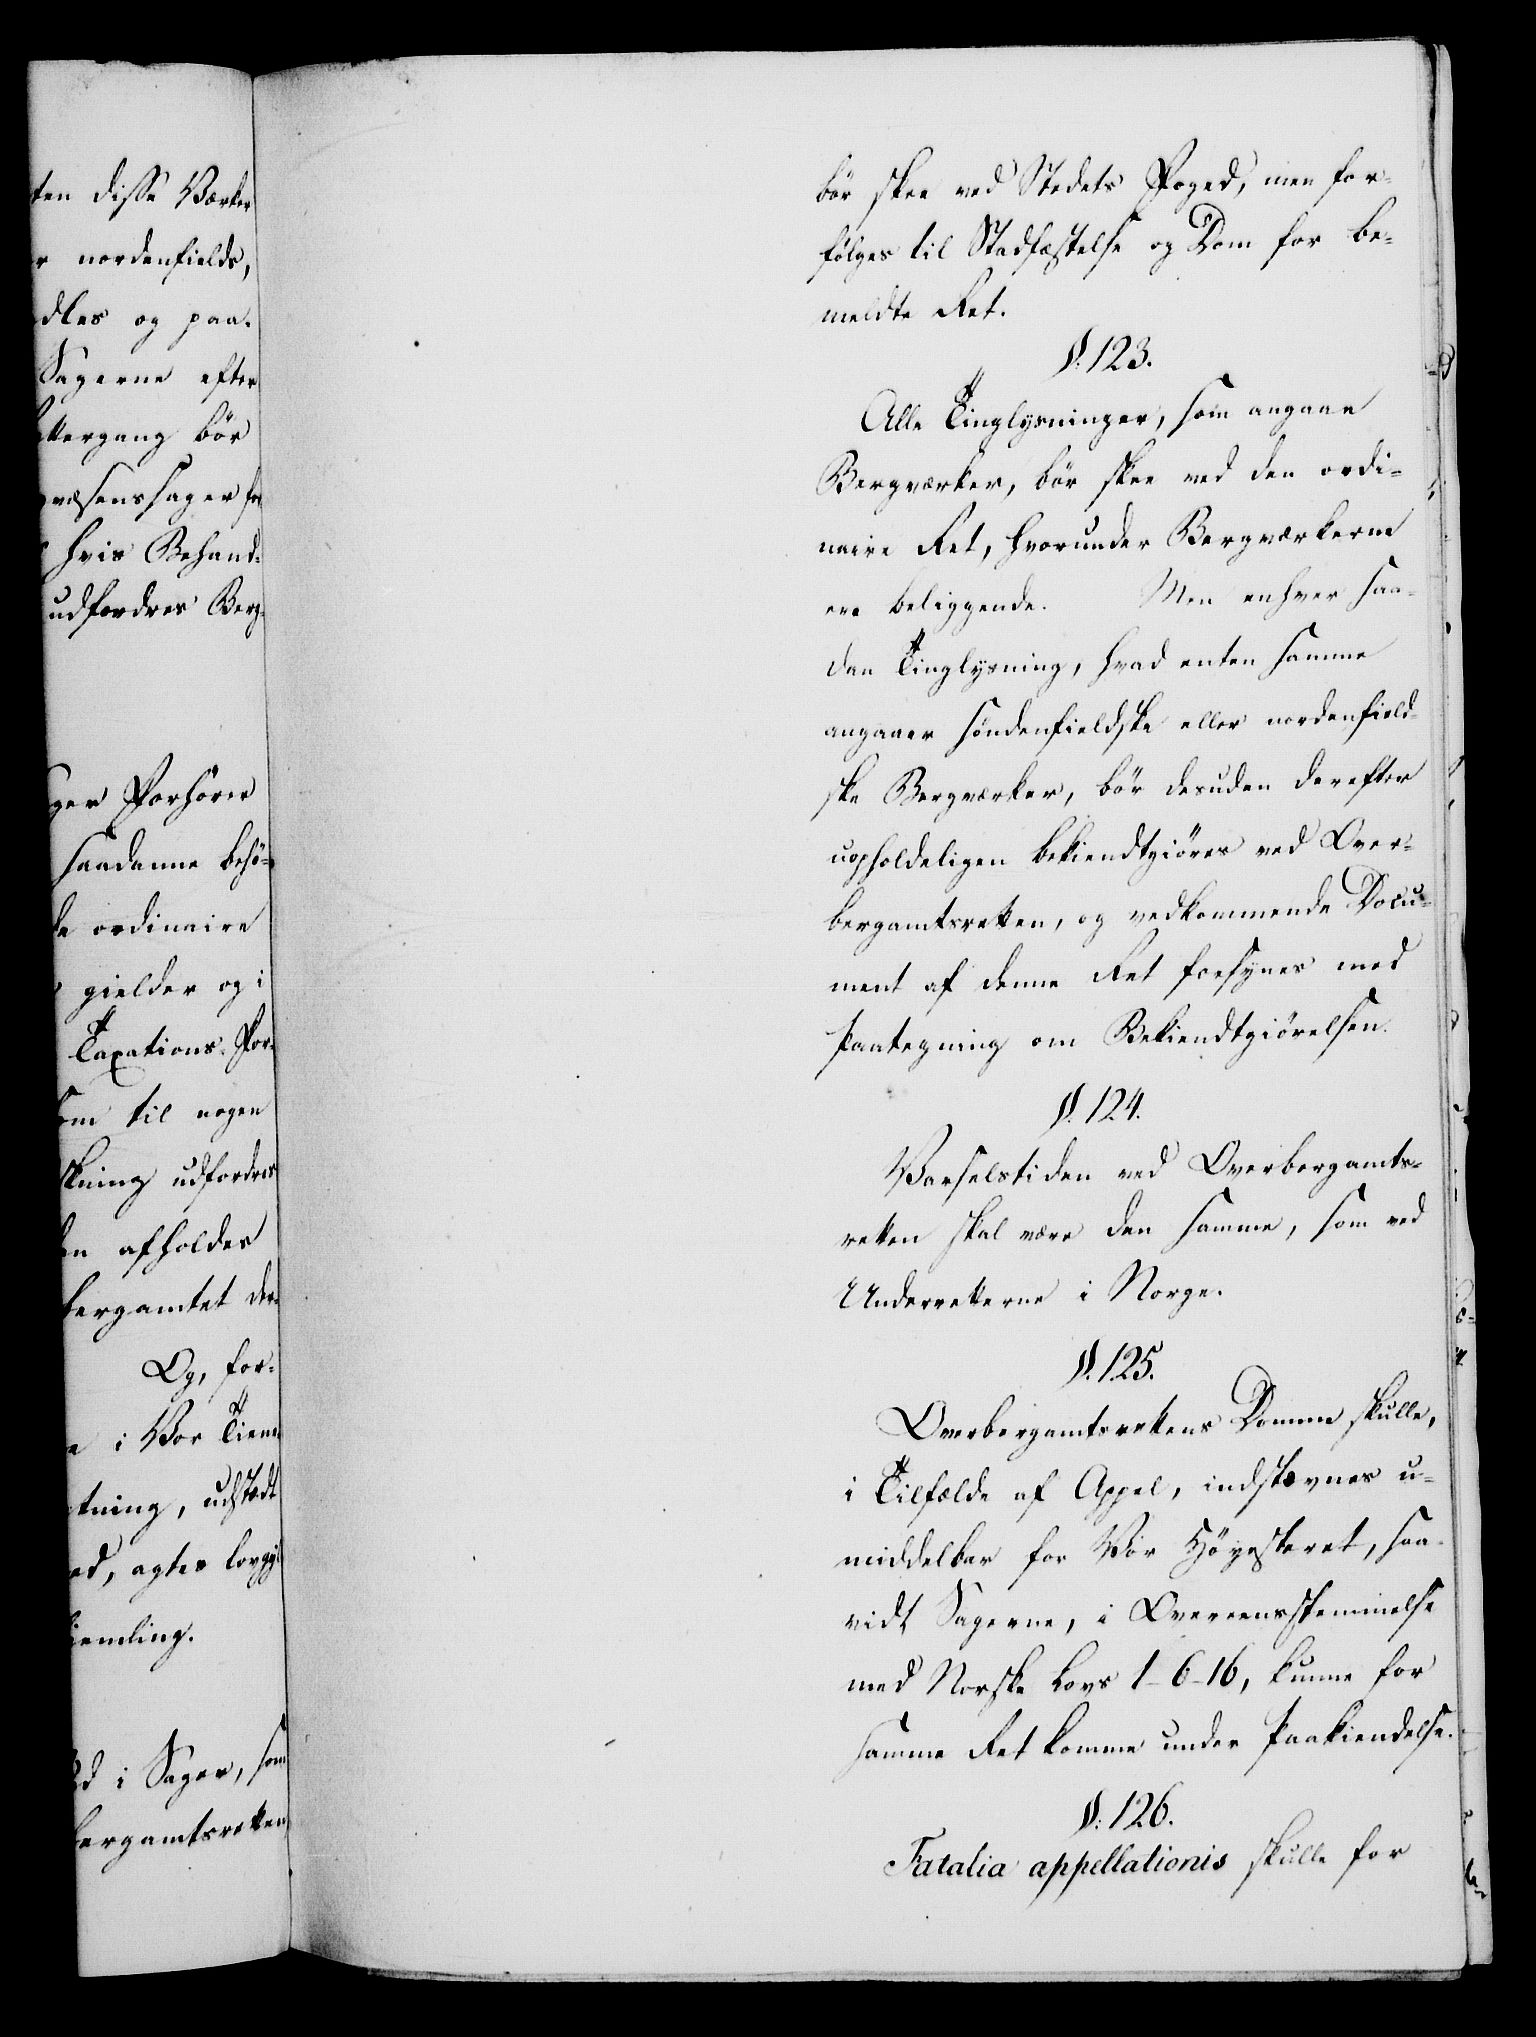 ten disse Værker
r nordenfields,
dles og paa-
Sagerne efter
ttergang bør
væsenssager for
hvis Behand-
udfordres Berg-
ger Forhører
saadanne behö-
de ordinaire
gielder og i
Taxations-For-
som til nogen
skning udfordres
en afholdes
bergamtet der-
Og, for-
e i Vor Tiene
tning, udstædt
ed, agtes lovgyl
iemling.
d i Sager, som
bergamtsretten
bör skee ved Stedets Foged, men for-
fölges til Stadfæstelse og Dom for be-
meldte Ret.
§. 123.
Alle Tinglysninger, som angaae
Bergværker, bör skee ved den ordi-
naire Ret, hvorunder Bergværkerne
ere beliggende. Men enhver saa-
dan Tinglysning, hvad enten samme
angaaer söndenfieldske eller nordenfield-
ske Bergværker, bör desuden derefter
uopholdeligen bekiendtgiöres ved Over-
bergamtsretten, og vedkommende Docu-
ment af denne Ret forsynes med
Paategning om Bekiendtgiörelsen.
§. 124.
Varselstiden ved Overbergamts-
retten skal være den samme, som ved
Underretterne i Norge.
§. 125.
Overbergamtsrettens Domme skulle,
i Tilfælde af Appel, indstævnes u-
middelbar for Vor Höyesteret, saa-
vidt Sagerne, i Overeensstemmelse
med Norske Lovs 1-6-16, kunne for
samme Ret komme under Paakiendelse.
§. 126.
Fatalia appellationis skulle for